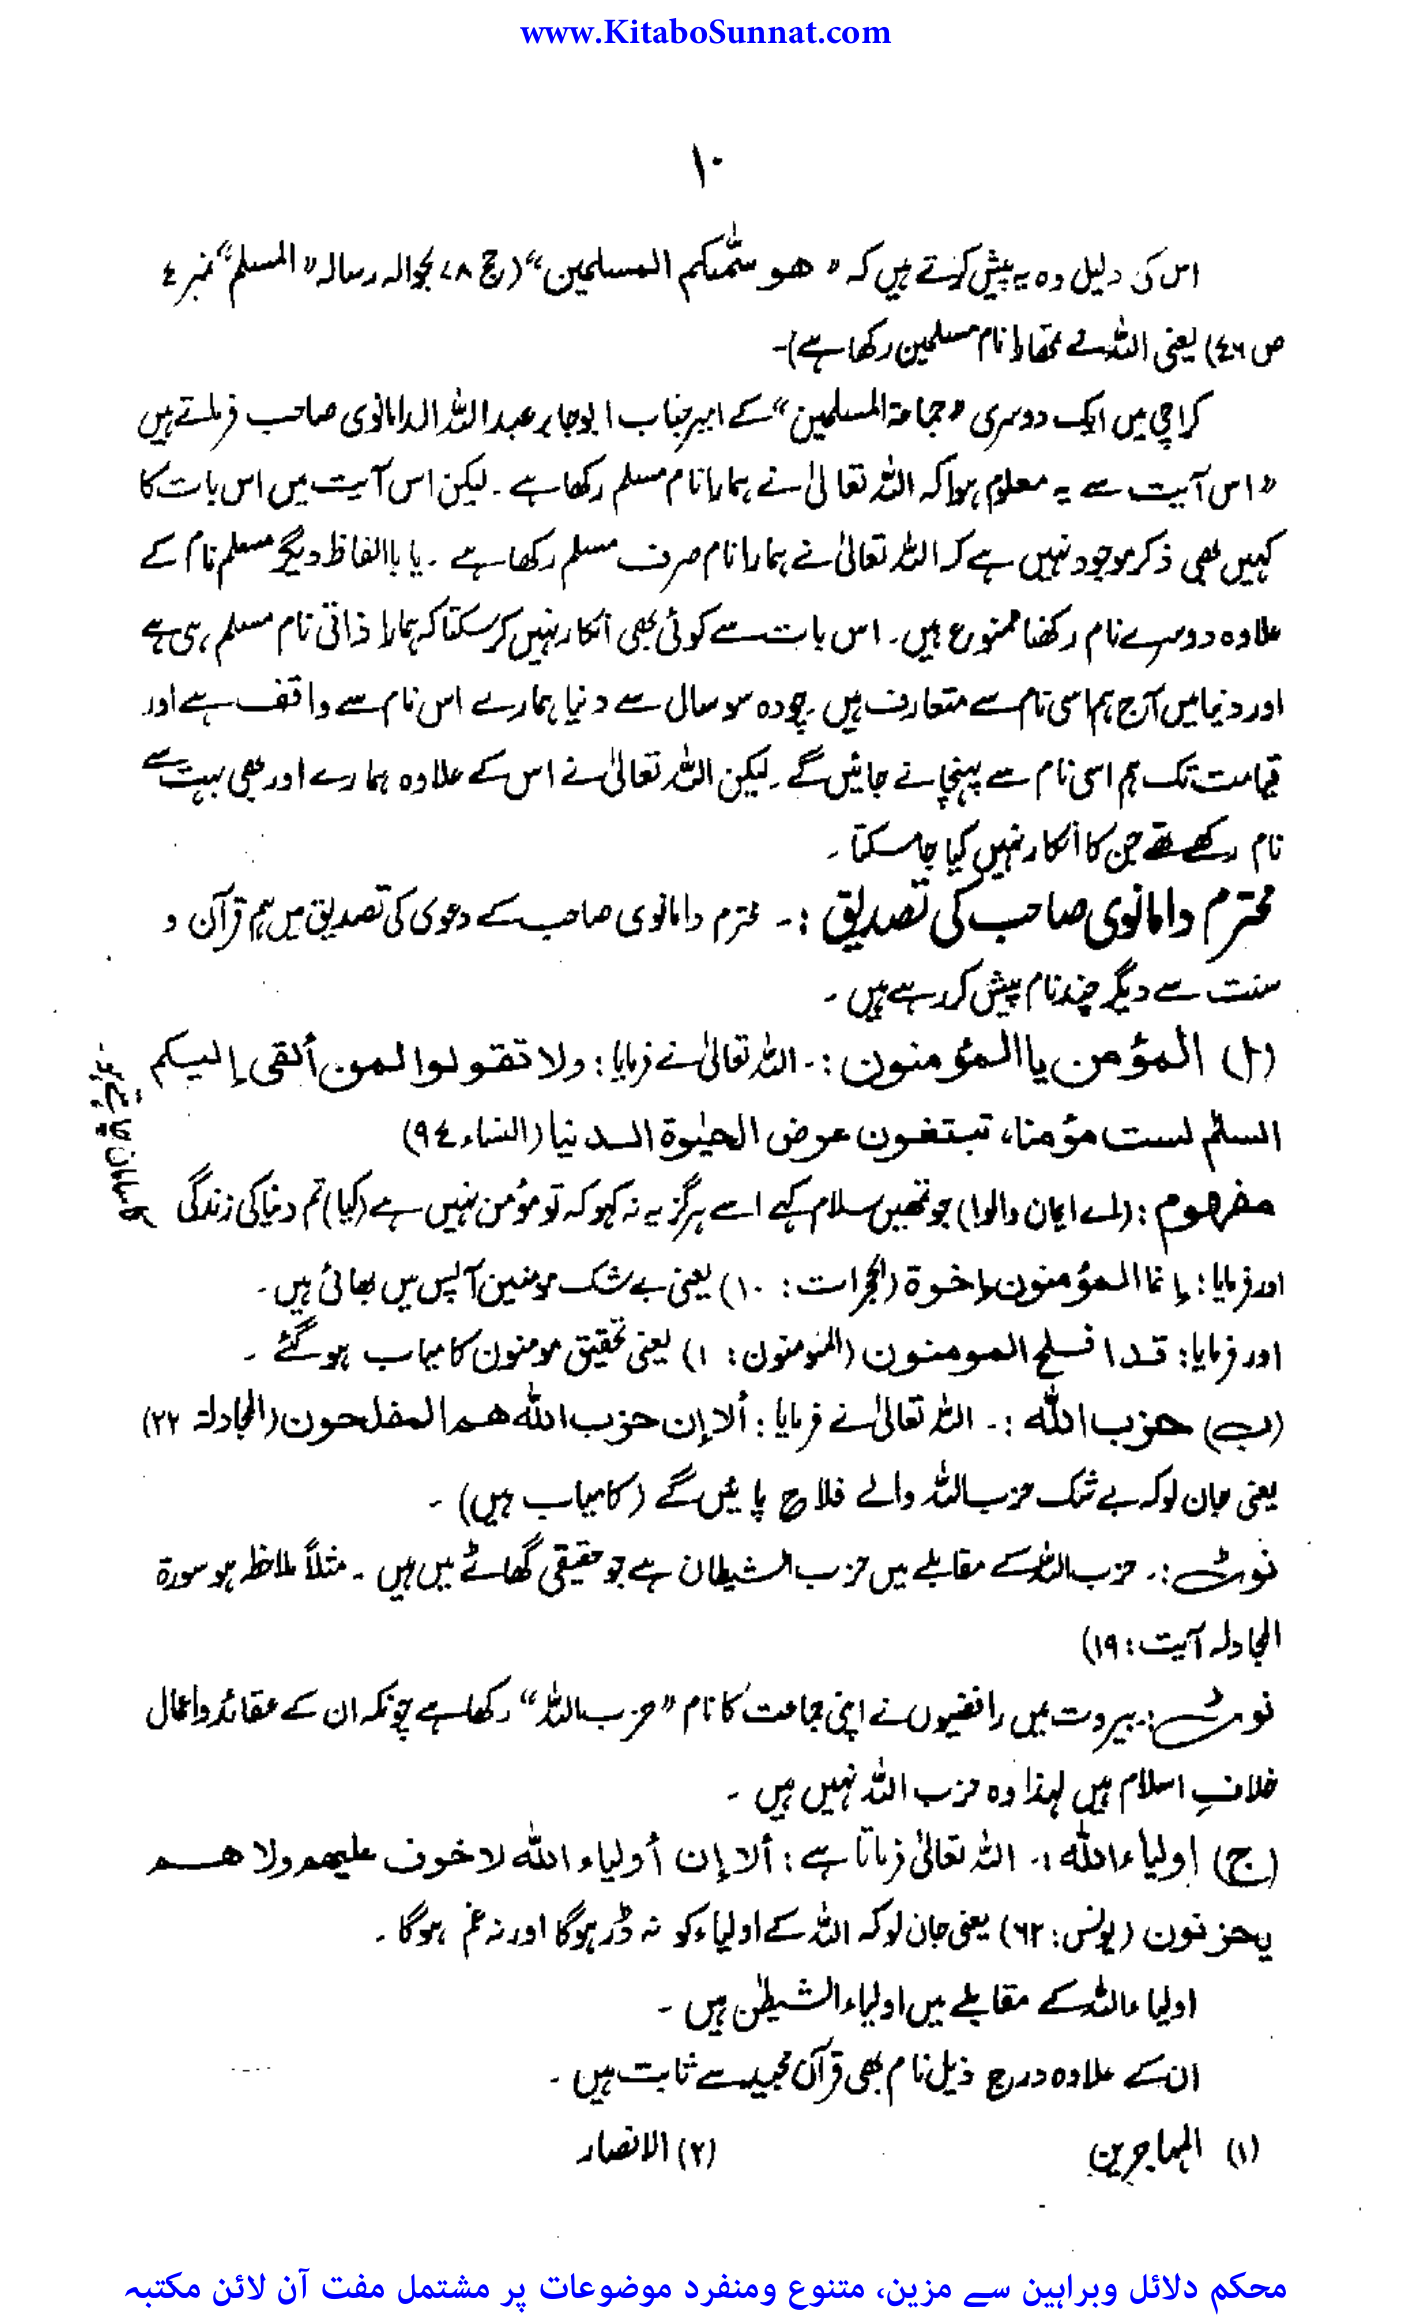 www.KitaboSunnat.com
۱۰
اس کی دلیل وہ یہ پیش کرتے ہیں کہ «هو سمّٰىكم المسلمين» (حج ۷۸ بحوالہ رسالہ «المسلم» نمبر ٤
ص ٤٦) یعنی اللہ نے تمھارا نام مسلمین رکھا ہے)۔
کراچی میں ایک دوسری «جماعۃ المسلمین» کے امیر جناب ابو جابر عبداللہ الدامانوی صاحب فرماتے ہیں
«اس آیت سے یہ معلوم ہوا کہ اللہ تعالیٰ نے ہمارا نام مسلم رکھا ہے۔ لیکن اس آیت میں اس بات کا
کہیں بھی ذکر موجود نہیں ہے کہ اللہ تعالیٰ نے ہمارا نام صرف مسلم رکھا ہے۔ یا باالفاظ دیگر مسلم نام کے
علاوہ دوسرے نام رکھنا ممنوع ہیں۔ اس بات سے کوئی بھی انکار نہیں کر سکتا کہ ہمارا ذاتی نام مسلم ہی ہے
اور دنیا میں آج ہم اسی نام سے متعارف ہیں۔ چودہ سو سال سے دنیا ہمارے اس نام سے واقف ہے اور
قیامت تک ہم اسی نام سے پہنچانے جائیں گے۔ لیکن اللہ تعالیٰ نے اس کے علاوہ ہمارے اور بھی بہت سے
نام رکھے تھے جن کا انکار نہیں کیا جا سکتا۔
محترم دامانوی صاحب کی تصدیق :۔ محترم دامانوی صاحب کے دعوی کی تصدیق میں ہم قرآن و
سنت سے دیگر چند نام پیش کر رہے ہیں۔
(ا) المؤمن یا المؤمنون :۔ اللہ تعالیٰ نے فرمایا : ولا تقولوا لمن ألقى إليكم
السلٰم لست مؤمنا، تبتغون عرض الحيٰوة الدنيا (النساء ۹٤)
مفہوم : (اے ایمان والوا) جو تمھیں سلام کہے اسے ہرگز یہ نہ کہو کہ تو مؤمن نہیں ہے (کیا) تم دنیا کی زندگی
کا سامان چاہتے ہو۔
اور فرمایا : إنما المؤمنون إخوة (الحجرات : ۱۰) یعنی بے شک مومنین آپس میں بھائی ہیں۔
اور فرمایا : قد افلح المومنون (المؤمنون : ۱) یعنی تحقیق مومنون کامیاب ہو گئے۔
(ب) حزب اللہ :۔ اللہ تعالیٰ نے فرمایا : ألا إن حزب الله هم المفلحون (المجادلۃ ۲۲)
یعنی جان لو کہ بے شک حزب اللہ والے فلاح پائیں گے (کامیاب ہیں)۔
نوٹ :۔ حزب اللہ کے مقابلے میں حزب الشیطان ہے جو حقیقی گھاٹے میں ہیں۔ مثلاً ملاحظہ ہو سورۃ
المجادلہ آیت : ۱۹)
نوٹ :۔ بیروت میں رافضیوں نے اپنی جماعت کا نام «حزب اللہ» رکھا ہے چونکہ ان کے عقائد و اعمال
خلافِ اسلام ہیں لہذا وہ حزب اللہ نہیں ہیں۔
(ج) اولیاء اللہ :۔ اللہ تعالیٰ فرماتا ہے : ألا إن أولياء الله لا خوف عليهم ولا هم
يحزنون (یونس : ٦۲) یعنی جان لو کہ اللہ کے اولیاء کو نہ ڈر ہوگا اور نہ غم ہوگا۔
اولیاء اللہ کے مقابلے میں اولیاء الشیطٰن ہیں۔
ان کے علاوہ درج ذیل نام بھی قرآن مجید سے ثابت ہیں۔
(۱) المہاجرین (۲) الانصار
محکم دلائل وبراہین سے مزین، متنوع ومنفرد موضوعات پر مشتمل مفت آن لائن مکتبہ